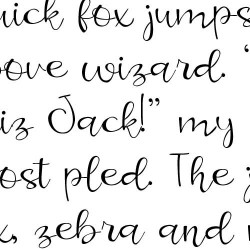 uick fox jumps
ove wizard. "
iz Jack!" my
ost pled. The
x, zebra and